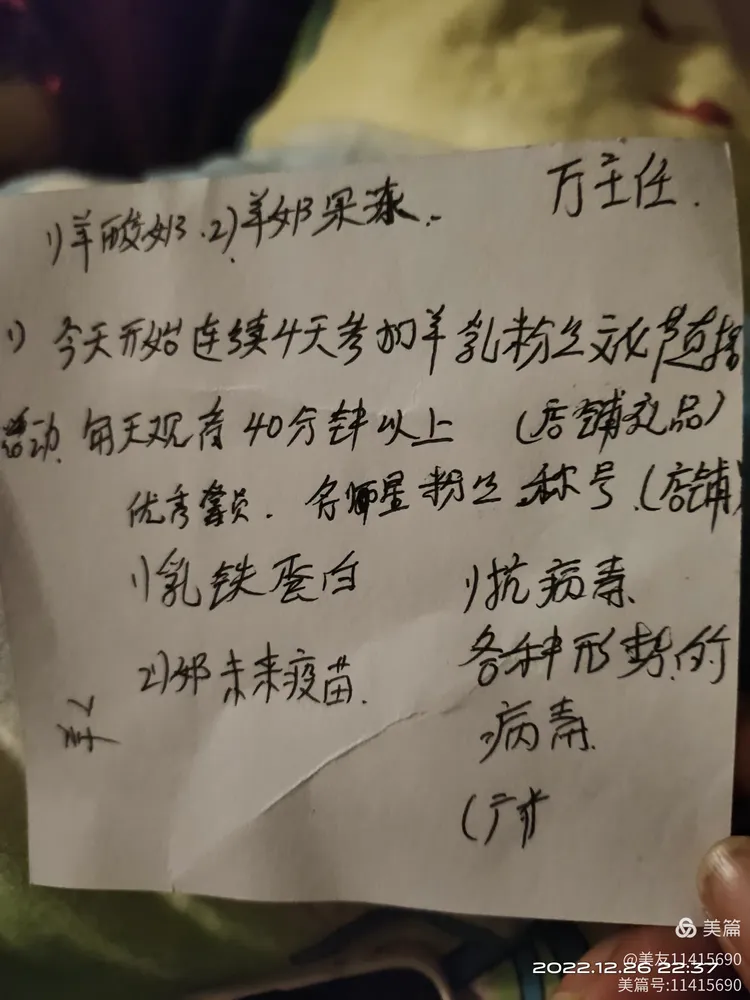 万主任.
1)羊酸奶.2)羊奶果冻.
1) 今天开始连续4天参加羊乳粉丝文化节直播
活动.每天观看40分钟以上 (店铺礼品)
优秀学员. 名师星粉丝.称号.(店铺)
1)乳铁蛋白
2)奶 未来疫苗.
1)抗病毒.
各种形势的
病毒.
美篇
@美友11415690
2022.12.26 22:37
美篇号:11415690